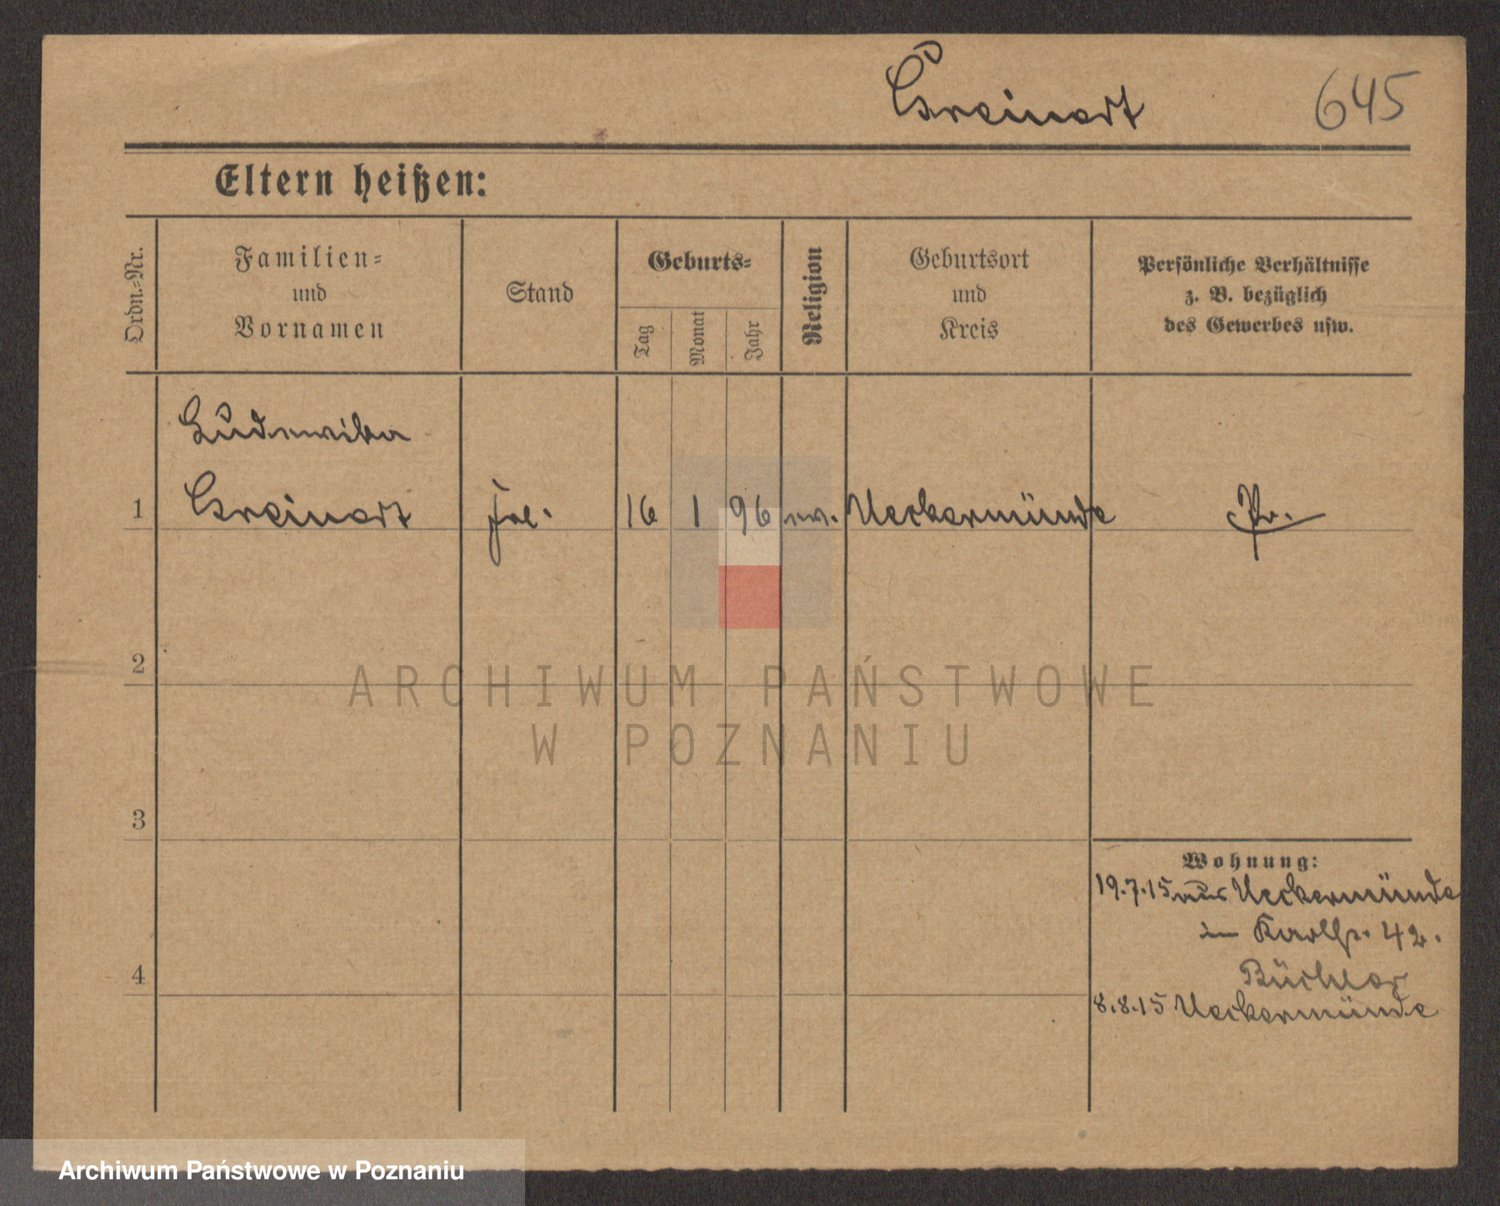 Greinert 645
Eltern heißen:
Ordn.-Nr.
Familien-
und
Vornamen
Stand
Geburts-
Tag
Monat
Jahr
Religion
Geburtsort
und
Kreis
Persönliche Verhältnisse
z. B. bezüglich
des Gewerbes usw.
Ludowika
1 Greinert frl. 16 1 96 ev. Ueckermünde Pr.
2
3
4
Wohnung:
19.7.15 aus Ueckermünde
42.
Büchler
8.8.15 Ueckermünde
ARCHIWUM PAŃSTWOWE
W POZNANIU
Archiwum Państwowe w Poznaniu